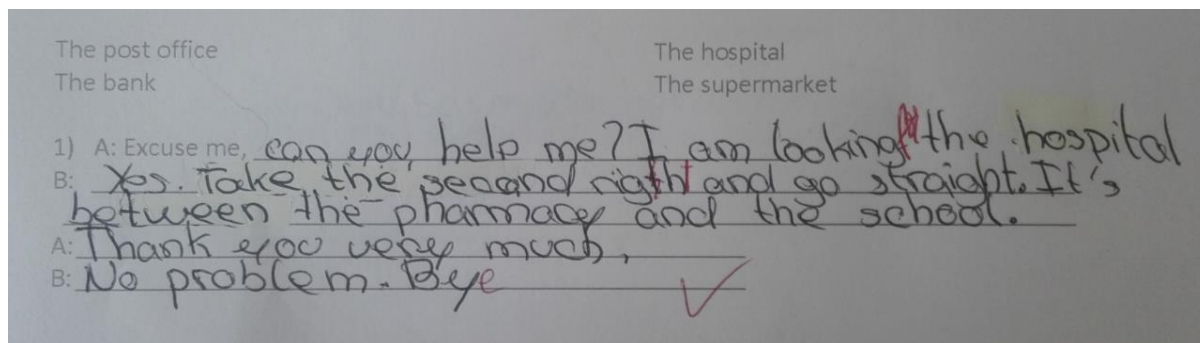 The post office The hospital
The bank The supermarket
1) A: Excuse me, can you help me? I am looking the hospital
B: Yes. Take the second right and go straight. It's
between the pharmacy and the school.
A: Thank you very much,
B: No problem. Bye